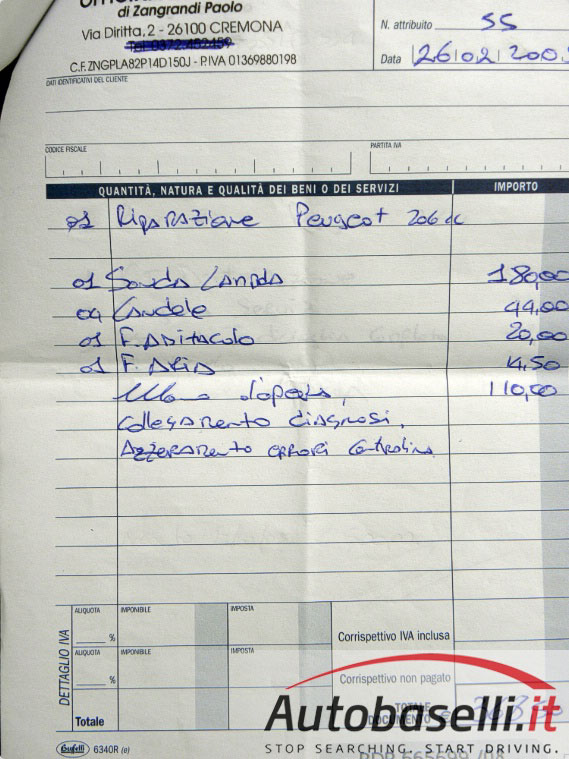 di Zangrandi Paolo
Via Diritta, 2 - 26100 CREMONA
C.F. ZNGPLA82P14D150J - P.IVA 01369880198
N. attribuito 55
Data 26 02 200
DATI IDENTIFICATIVI DEL CLIENTE
CODICE FISCALE
PARTITA IVA
QUANTITÀ, NATURA E QUALITÀ DEI BENI O DEI SERVIZI IMPORTO
01 Riparazione Peugeot 206 cc
01 Sonda Lambda 180,00
04 Candele 44,00
01 F. abitacolo 20,00
01 F. ARIA 14,50
Mano d'opera, 110,00
collegamento diagnosi,
Azzeramento errori centralina
DETTAGLIO IVA
ALIQUOTA IMPONIBILE IMPOSTA
% Corrispettivo IVA inclusa
ALIQUOTA IMPONIBILE IMPOSTA
% Corrispettivo non pagato
Totale TOTALE DOCUMENTO
Buffetti 6340R (e)
Autobaselli.it
STOP SEARCHING. START DRIVING.